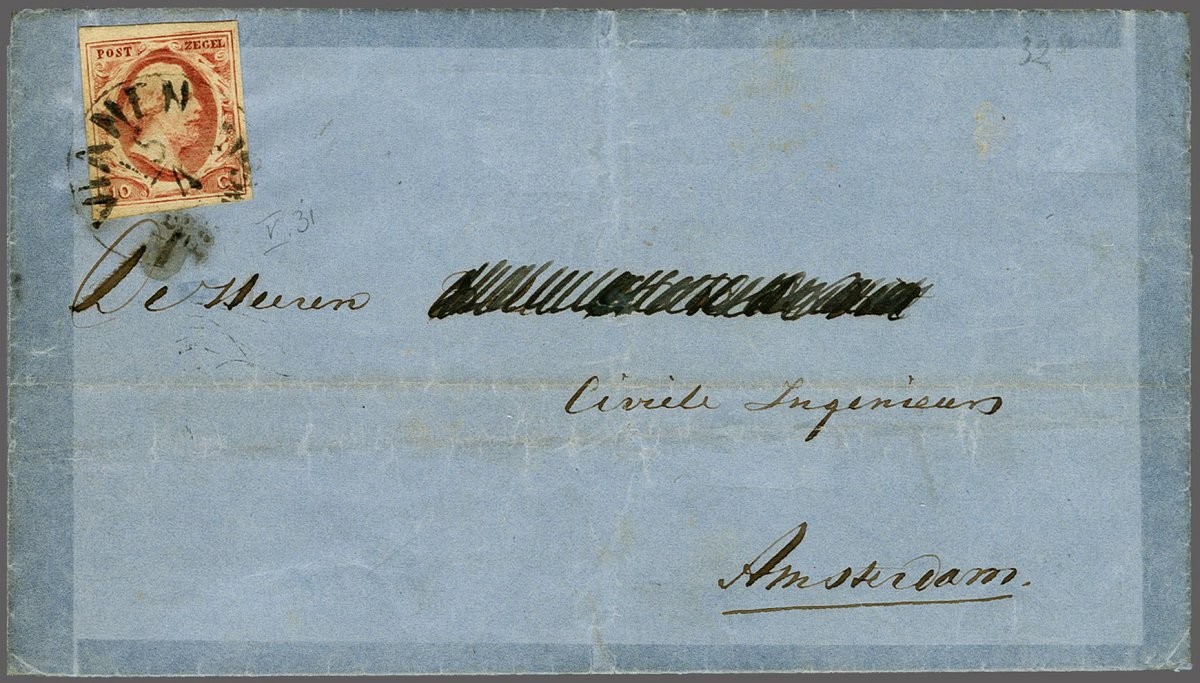 POST ZEGEL
10 C
32
V. 31
De Heeren
Civiele Ingenieurs
Amsterdam.